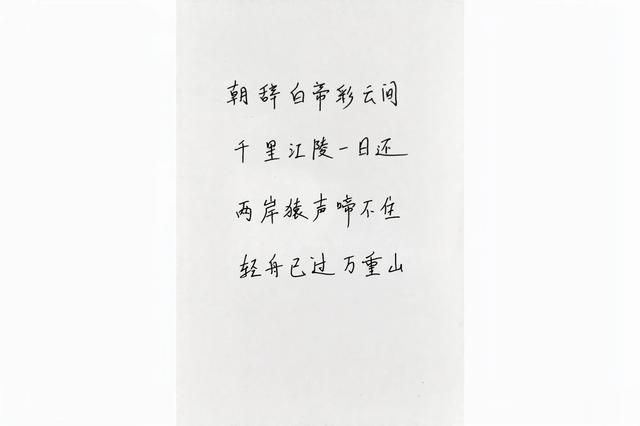 朝辞白帝彩云间
千里江陵一日还
两岸猿声啼不住
轻舟已过万重山